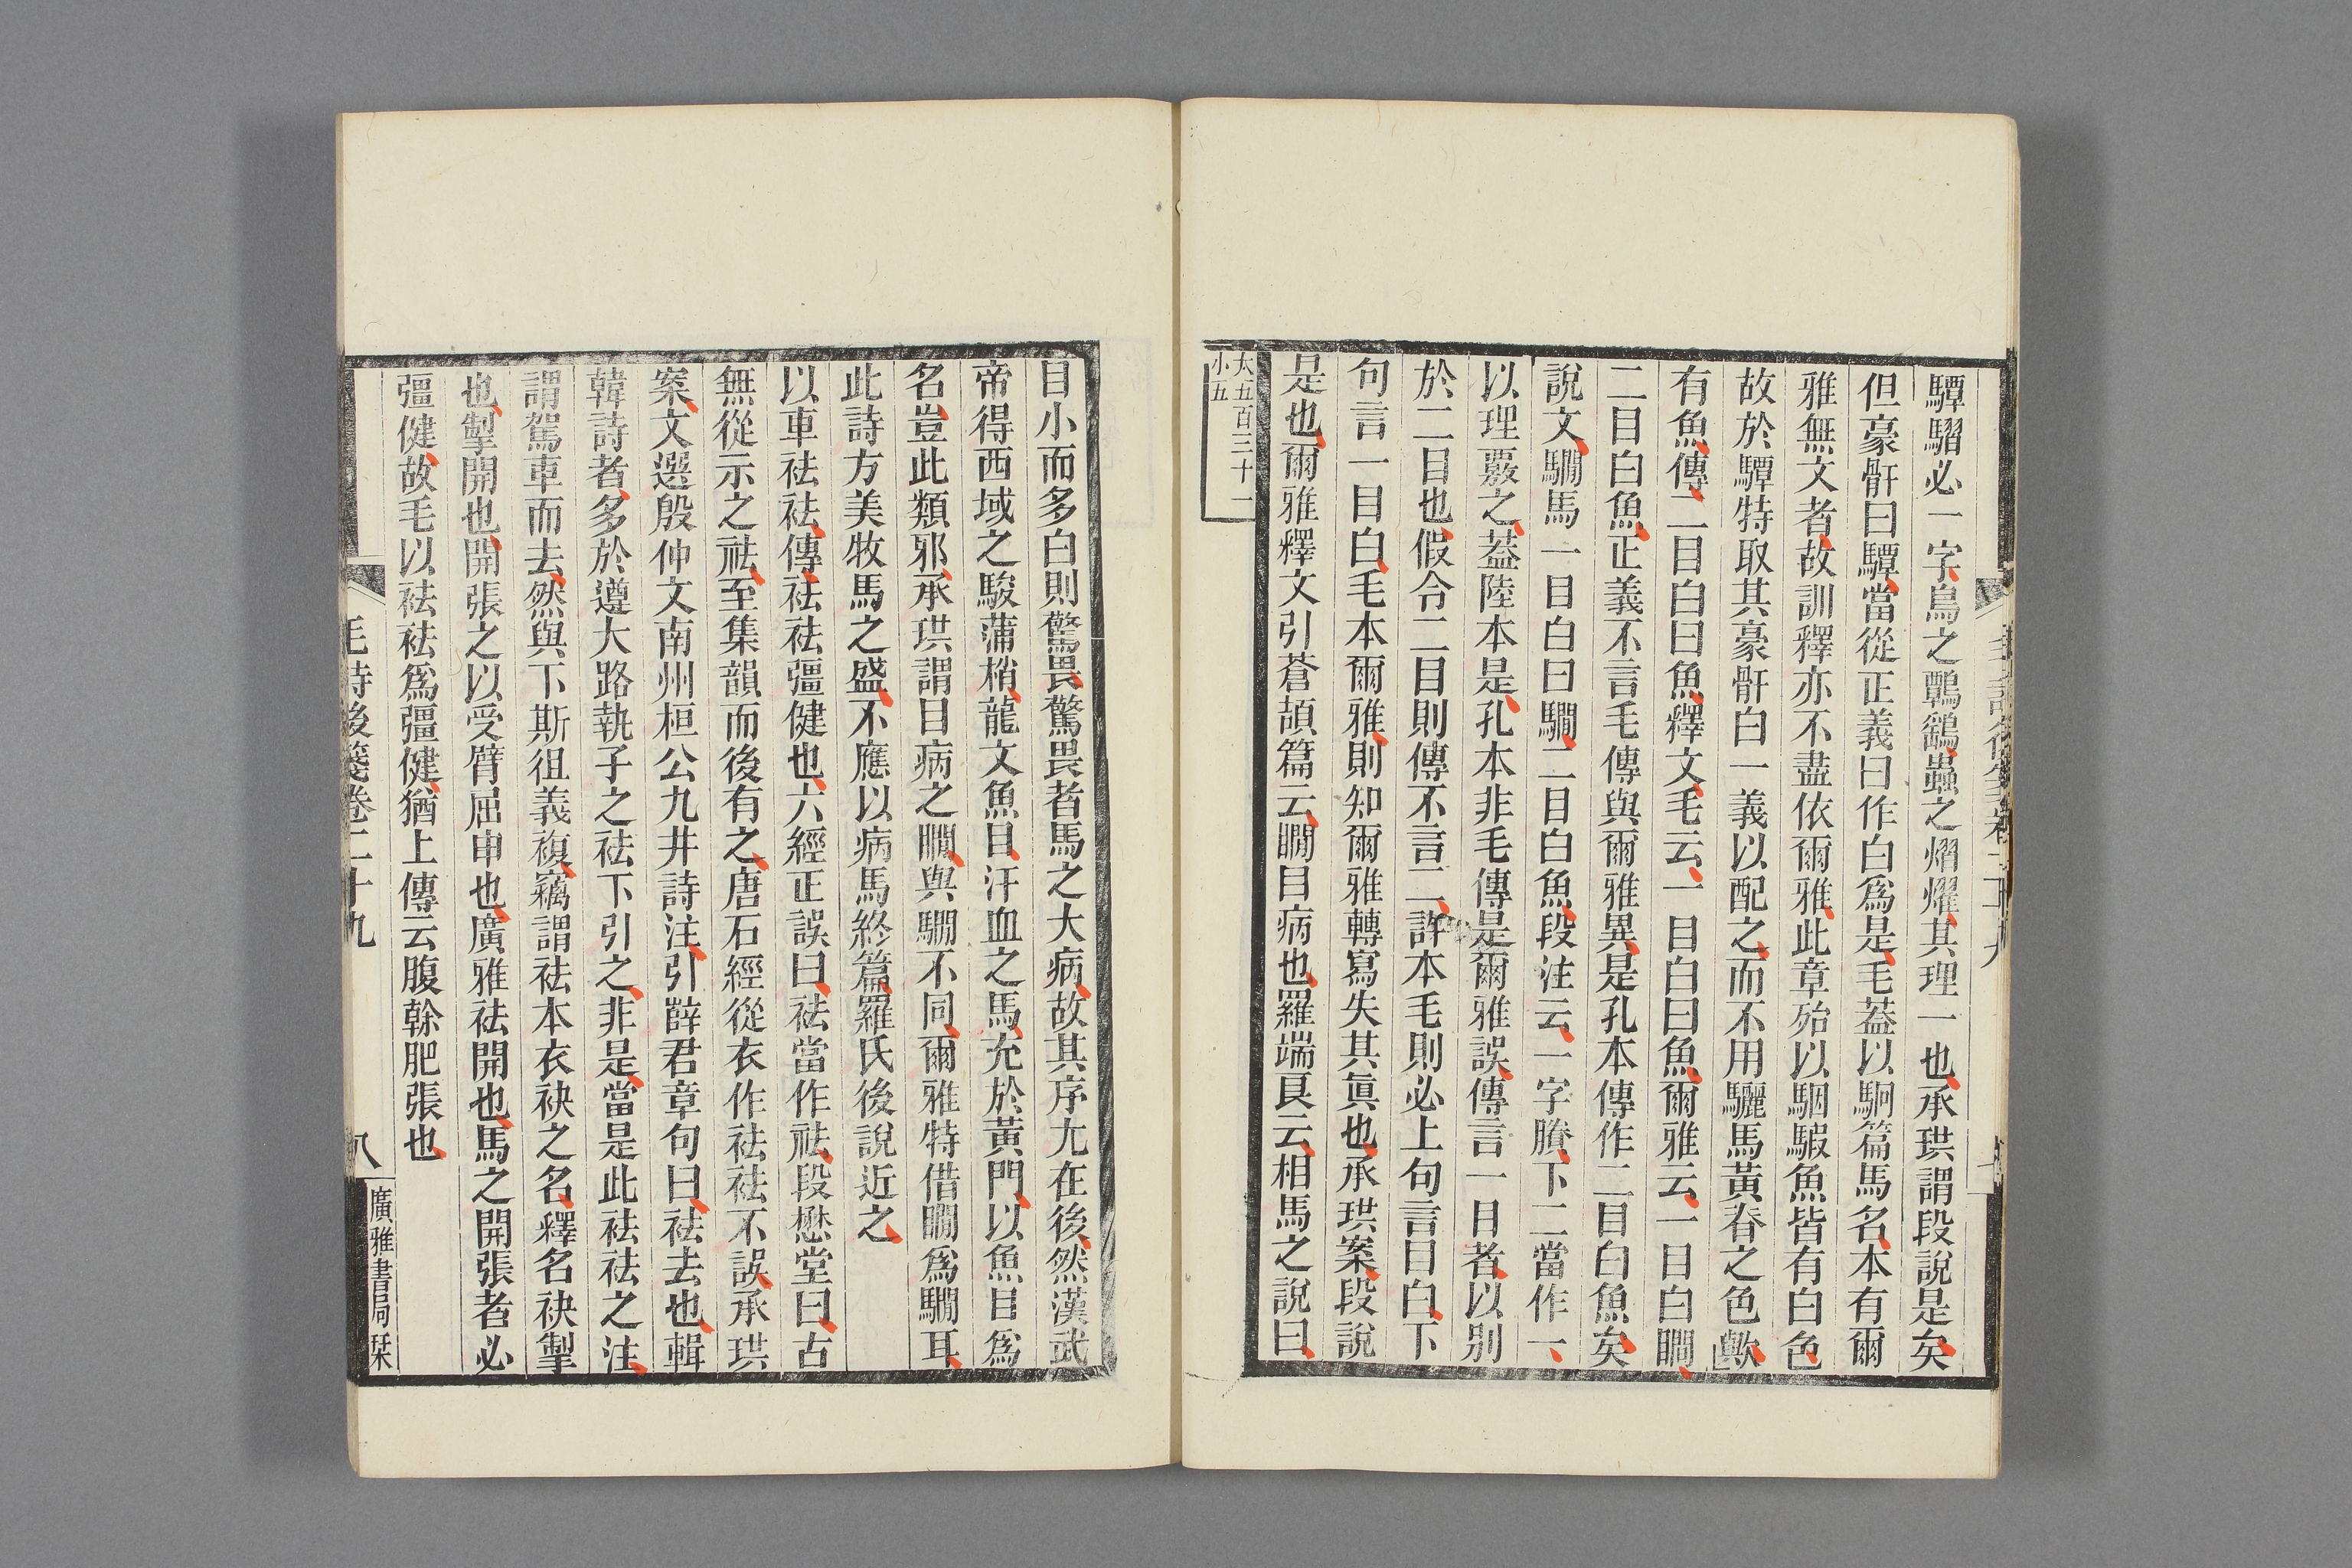 驔騽必一字鳥之鷣鷂蟲之熠燿其理一也承珙謂段說是矣
但豪骭曰驔當從正義曰作白爲是毛葢以駉篇馬名本有爾
雅無文者故訓釋亦不盡依爾雅此章殆以駰騢魚皆有白色
故於驔特取其豪骭白一義以配之而不用驪馬黃脊之色歟
有魚傳二目白曰魚釋文毛云一目白曰魚爾雅云一目白瞯
二目白魚正義不言毛傳與爾雅異是孔本傳作二目白魚矣
說文騆馬一目白曰騆二目白魚段注云一字賸下二當作一
以理覈之葢陸本是孔本非毛傳是爾雅誤傳言一目者以別
於二目也假令二目則傳不言二許本毛則必上句言目白下
句言一目白毛本爾雅則知爾雅轉寫失其眞也承珙案段說
是也爾雅釋文引蒼頡篇云瞯目病也羅端良云相馬之說曰
大五百三十一
小五
目小而多白則驚畏驚畏者馬之大病故其序尢在後然漢武
帝得西域之駿蒲梢龍文魚目汗血之馬充於黃門以魚目爲
名豈此類邪承珙謂目病之瞯與騆不同爾雅特借瞯爲騆耳
此詩方美牧馬之盛不應以病馬終篇羅氏後說近之
以車祛祛傳祛祛彊健也六經正誤曰祛當作祛段懋堂曰古
無從示之祛至集韻而後有之唐石經從衣作祛祛不誤承珙
案文選殷仲文南州桓公九井詩注引薛君章句曰祛去也輯
韓詩者多於遵大路執子之祛下引之非是當是此祛祛之注
謂駕車而去然與下斯徂義複竊謂祛本衣袂之名釋名袂掣
也掣開也開張之以受臂屈申也廣雅祛開也馬之開張者必
彊健故毛以祛祛爲彊健猶上傳云腹榦肥張也
毛詩後箋卷二十九
八
廣雅書局栞